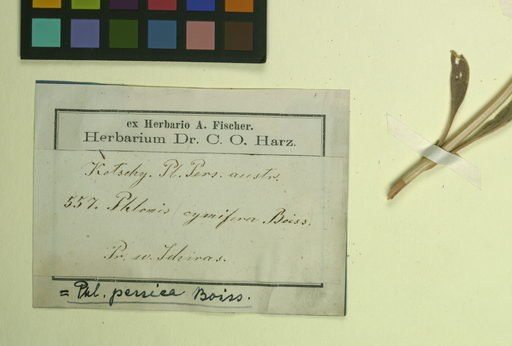 ex Herbario A. Fischer.
Herbarium Dr. C. O. Harz.
Kotschy. Pl. Pers. austr.
557. Phlomis cymifera Boiss.
Pr. u. Schiras.
= Phl. persica Boiss.